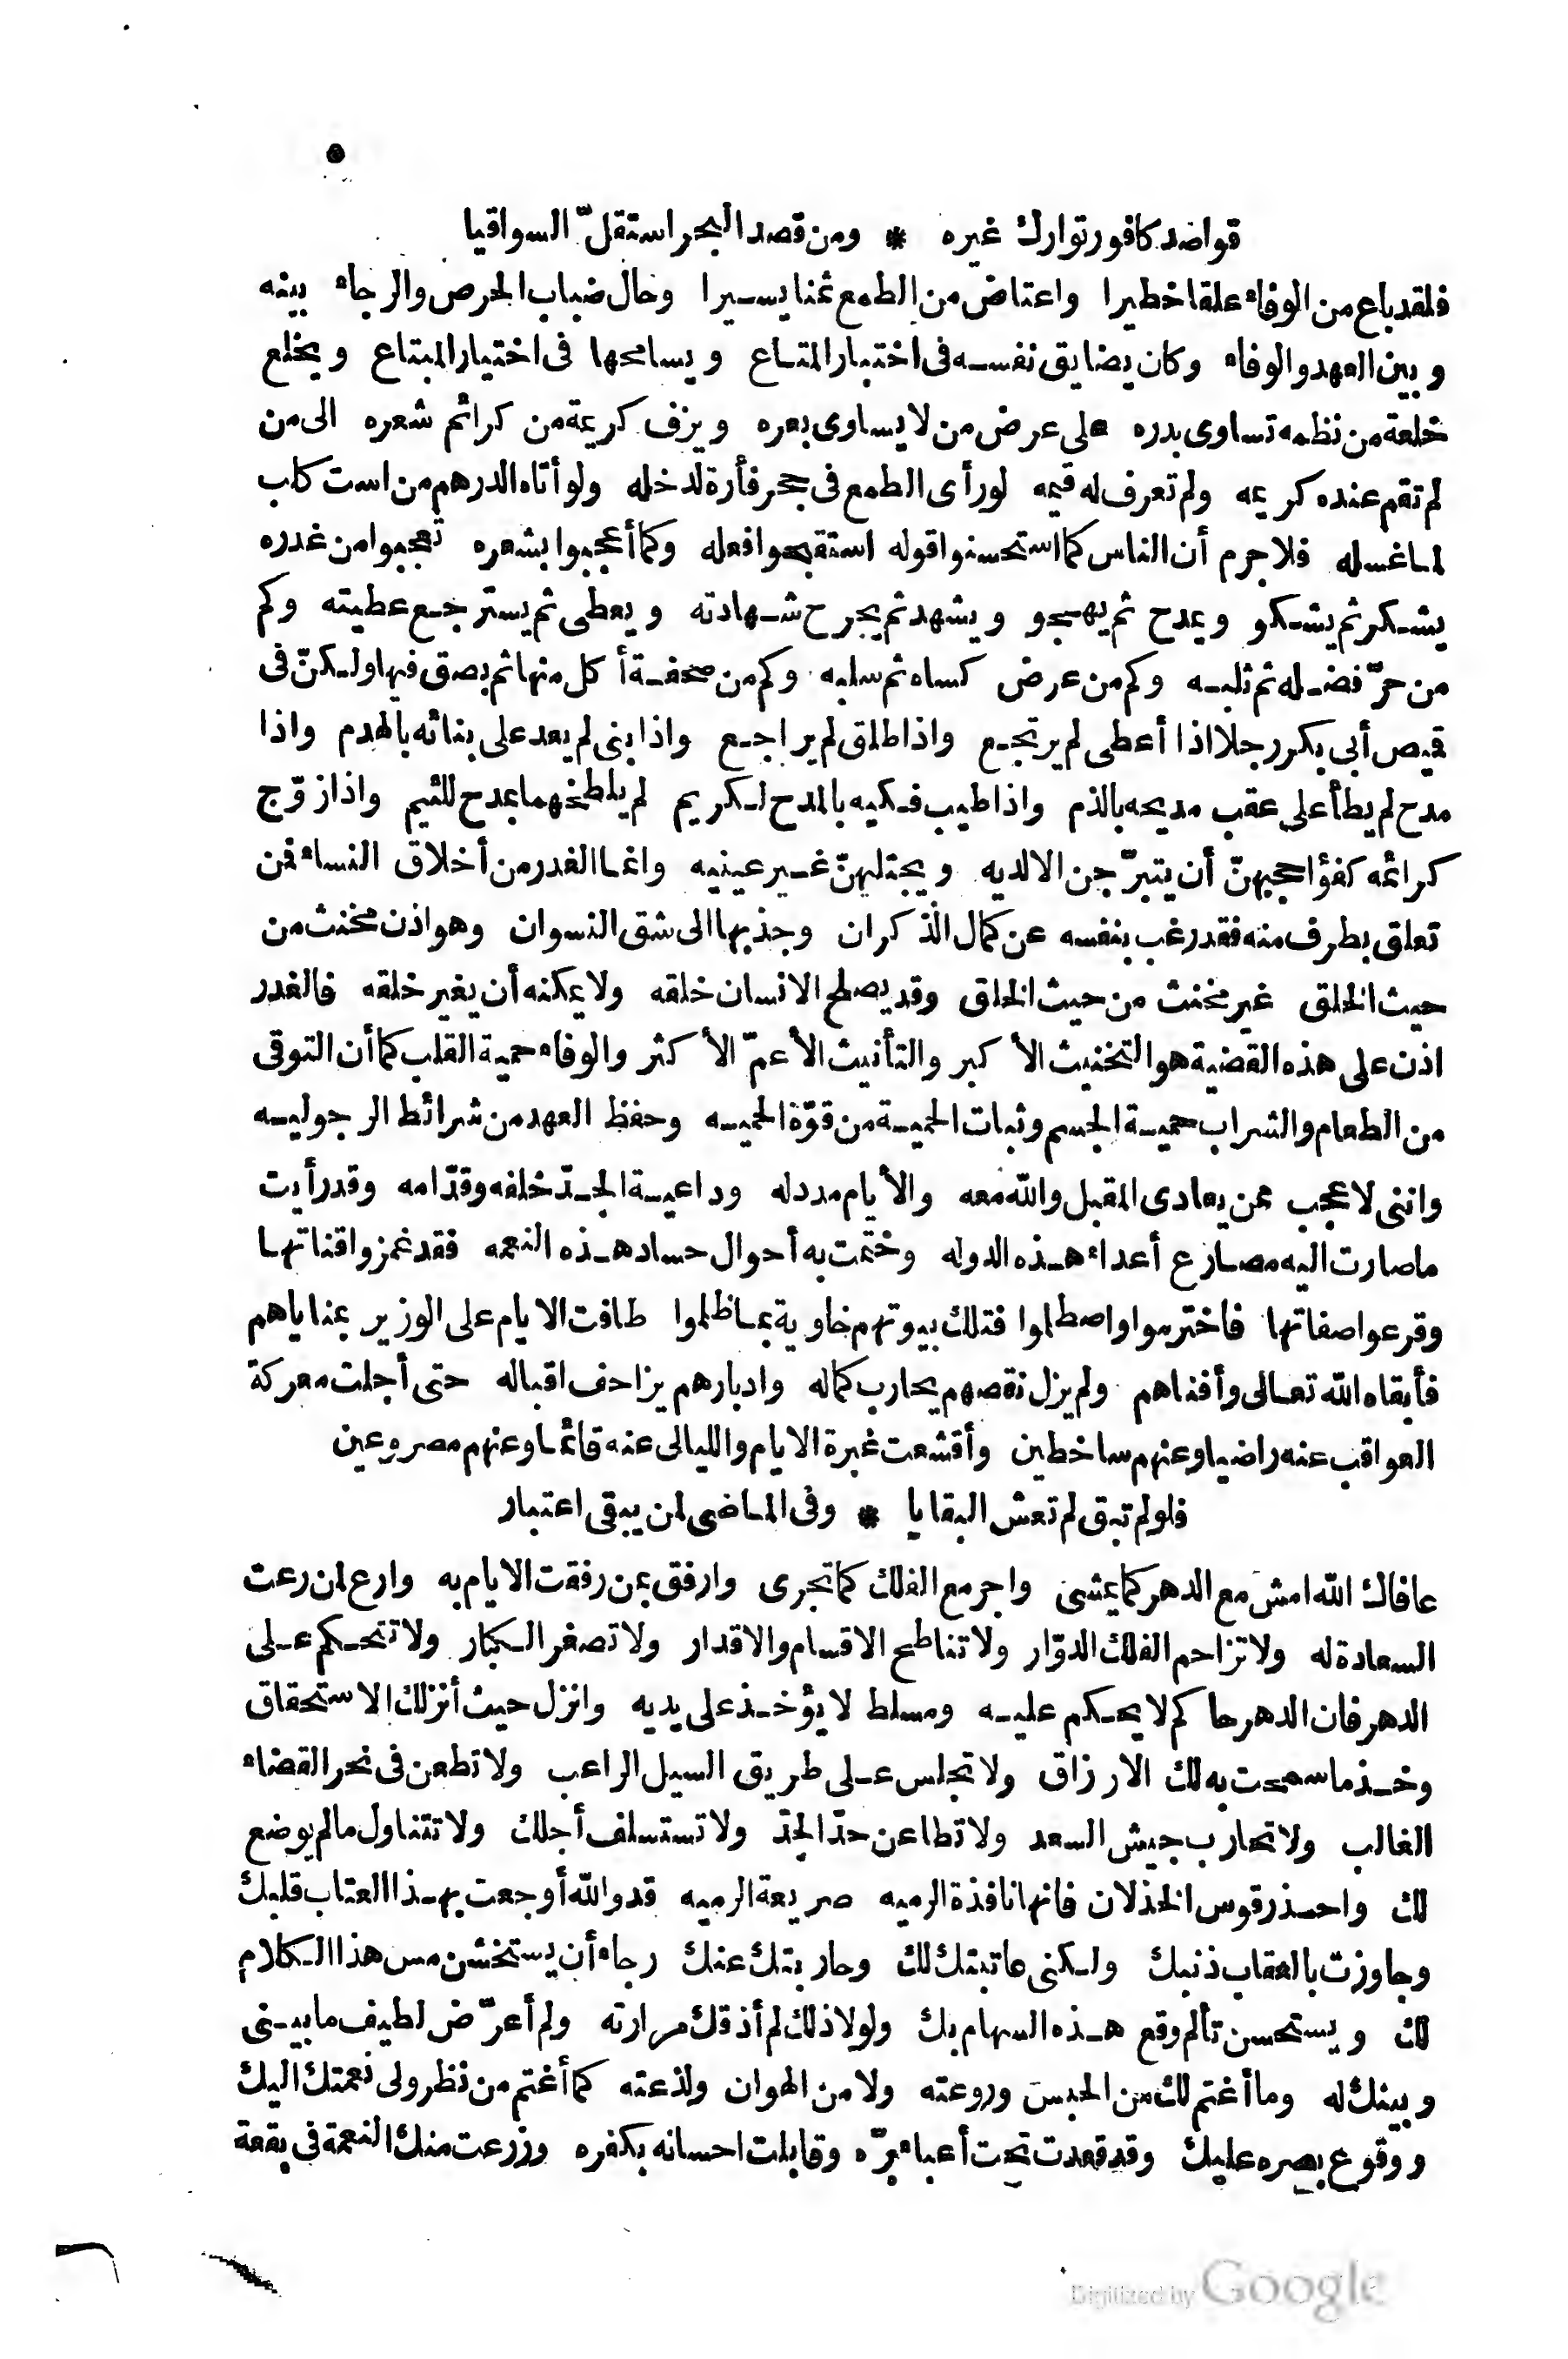 ٥
قواضد كافور توارك غيره * ومن قصد البحر استقلّ السواقيا
فلقد باع من الوفاء علقا خطيرا واعتاض من الطمع ثمنا يسيرا وحال ضباب الحرص والرجاء بينه
وبين العهد والوفاء وكان يضايق نفسه فى اختبار المتاع ويسامحها فى اختيار المبتاع ويخلع
خلعة من نظمه تساوى بدره على عرض من لا يساوى بعره ويزف كريمة من كرائم شعره الى من
لم تقم عنده كريمه ولم تعرف له قيمه لو رأى الطمع فى جحر فأرة لدخله ولو أتاه الدرهم من است كلب
لما غسله فلا جرم أن الناس كما استحسنوا قوله استقبحوا فعله وكما أعجبوا بشعره تعجبوا من غدره
يشكر ثم يشكو ويمدح ثم يهجو ويشهد ثم يجرح شهادته ويعطى ثم يسترجع عطيته وكم
من حرّ فضله ثم ثلبه وكم من عرض كساه ثم سلبه وكم من صحفة أكل منها ثم بصق فيها ولكنّ فى
قيص أبى بكر رجلا اذا أعطى لم يرتجع واذا طلق لم يراجع واذا بنى لم يعد على بنائه بالهدم واذا
مدح لم يطأ على عقب مديحه بالذم واذا طيب فكيه بالمدح لكريم لم يلطخهما بمدح للئيم واذا زوّج
كرائمه كفؤا حجبهنّ أن يتبرّجن الا لديه ويجتليهنّ غير عينيه وانما الغدر من أخلاق النساء فمن
تعلق بطرف منه فقد رغب بنفسه عن كمال الذكران وجذبها الى شق النسوان وهو اذن مخنث من
حيث الخلق غير مخنث من حيث الخلق وقد يصلح الانسان خلقه ولا يمكنه أن يغير خلقه فالغدر
اذن على هذه القضية هو التخنيث الأكبر والتأنيث الأعمّ الأكثر والوفاء حمية القلب كما أن التوقى
من الطعام والشراب حمية الجسم وثبات الحمية من قوّة الحميه وحفظ العهد من شرائط الرجوليه
واننى لاعجب ممن يعادى المقبل والله معه والأيام مدد له وداعية الجدّ خلفه وقدّامه وقد رأيت
ما صارت اليه مصارع أعداء هذه الدوله وختمت به أحوال حساد هذه النعمه فقد غمزوا قناتها
وقرعوا صفاتها فاخترموا واصطلموا فتلك بيوتهم خاوية بما ظلموا طافت الايام على الوزير بمناياهم
فأبقاه الله تعالى وأفناهم ولم يزل نقصهم يحارب كماله وادبارهم يزاحف اقباله حتى أجلت معركة
العواقب عنه راضيا وعنهم ساخطين وأقشعت غبرة الايام والليالى عنه قائما وعنهم مصروعين
فلو لم تبق لم تعش البقايا * وفى الماضى لمن يبقى اعتبار
عافاك الله امش مع الدهر كما يمشى واجر مع الفلك كما تجرى وارفق بمن رفقت الايام به وارع لمن رعت
السعادة له ولا تزاحم الفلك الدوّار ولا تناطح الاقسام والاقدار ولا تصغر الكبار ولا تتحكم على
الدهر فان الدهر حاكم لا يحكم عليه ومسلط لا يؤخذ على يديه وانزل حيث أنزلك الاستحقاق
وخذ ما سمحت به لك الارزاق ولا تجلس على طريق السيل الراعب ولا تطعن فى نحر القضاء
الغالب ولا تحارب جيش السعد ولا تطاعن حدّ الجدّ ولا تستسلف أجلك ولا تتناول ما لم يوضع
لك واحذر قوس الخذلان فانها نافذة الرميه صريعة الرميه قد والله أوجعت بهذا العتاب قلبك
وجاوزت بالعقاب ذنبك ولكنى عاتبتك لك وحاربتك عنك رجاء أن يستخشن مس هذا الكلام
لك ويستحسن تألم وقع هذه السهام بك ولولا ذلك لم أذقك مرارته ولم أعرّض لطيف ما بينى
وبينك له وما أغتم لك من الحبس وروعته ولا من الهوان ولذعته كما أغتم من نظر ولى نعمتك اليك
ووقوع بصره عليك وقد قعدت تحت أعباء برّه وقابلت احسانه بكفره وزرعت منك النعمة فى بقعة
Digitized by Google